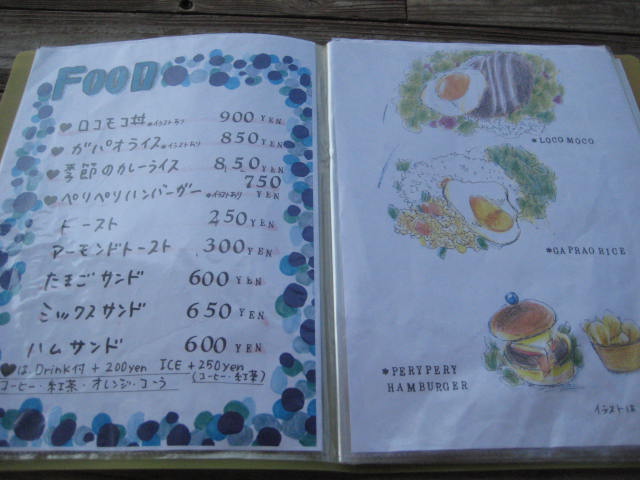 FOOD
♥ロコモコ丼 *イラストあり 900 YEN
♥ガパオライス *イラストあり 850 YEN
♥季節のカレーライス 850 YEN
♥ペリペリハンバーガー *イラストあり 750 YEN
トースト 250 YEN
アーモンドトースト 300 YEN
たまごサンド 600 YEN
ミックスサンド 650 YEN
ハムサンド 600 YEN
♥は Drink付 + 200yen ICE + 250yen
コーヒー・紅茶・オレンジ・コーラ (コーヒー・紅茶)
*LOCO MOCO
*GAPRAO RICE
*PERYPERY
HAMBURGER
イラストは